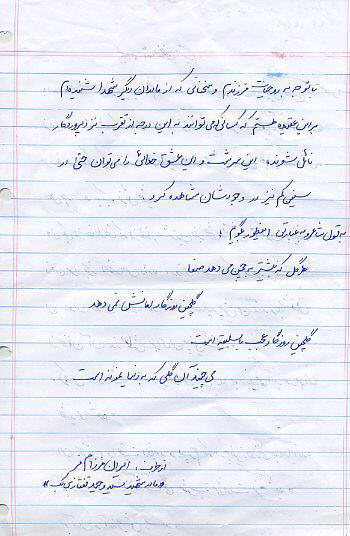 با توجه به روحیات فرزندم و سخنانی که از مادران دیگر شهدا شنیده‌ام
بر این عقیده هستم که کسانی که می‌توانند به این درجه از تقرب نزد پروردگار
نائل شوند، این سرشت و این عشق خدائی را می‌توان حتی در
سنین کم نیز در وجودشان مشاهده کرد.
به قول شاعر و به عبارتی اینطور بگویم:
هر گل که بیشتر به چمن می دهد صفا
گلچین روزگار امانش نمی دهد
گلچین روزگار عجب با سلیقه است
می چیند آن گلی که به دنیا نمونه است
از طرف: ایران مرزام فر
«مادر شهید سید وحید